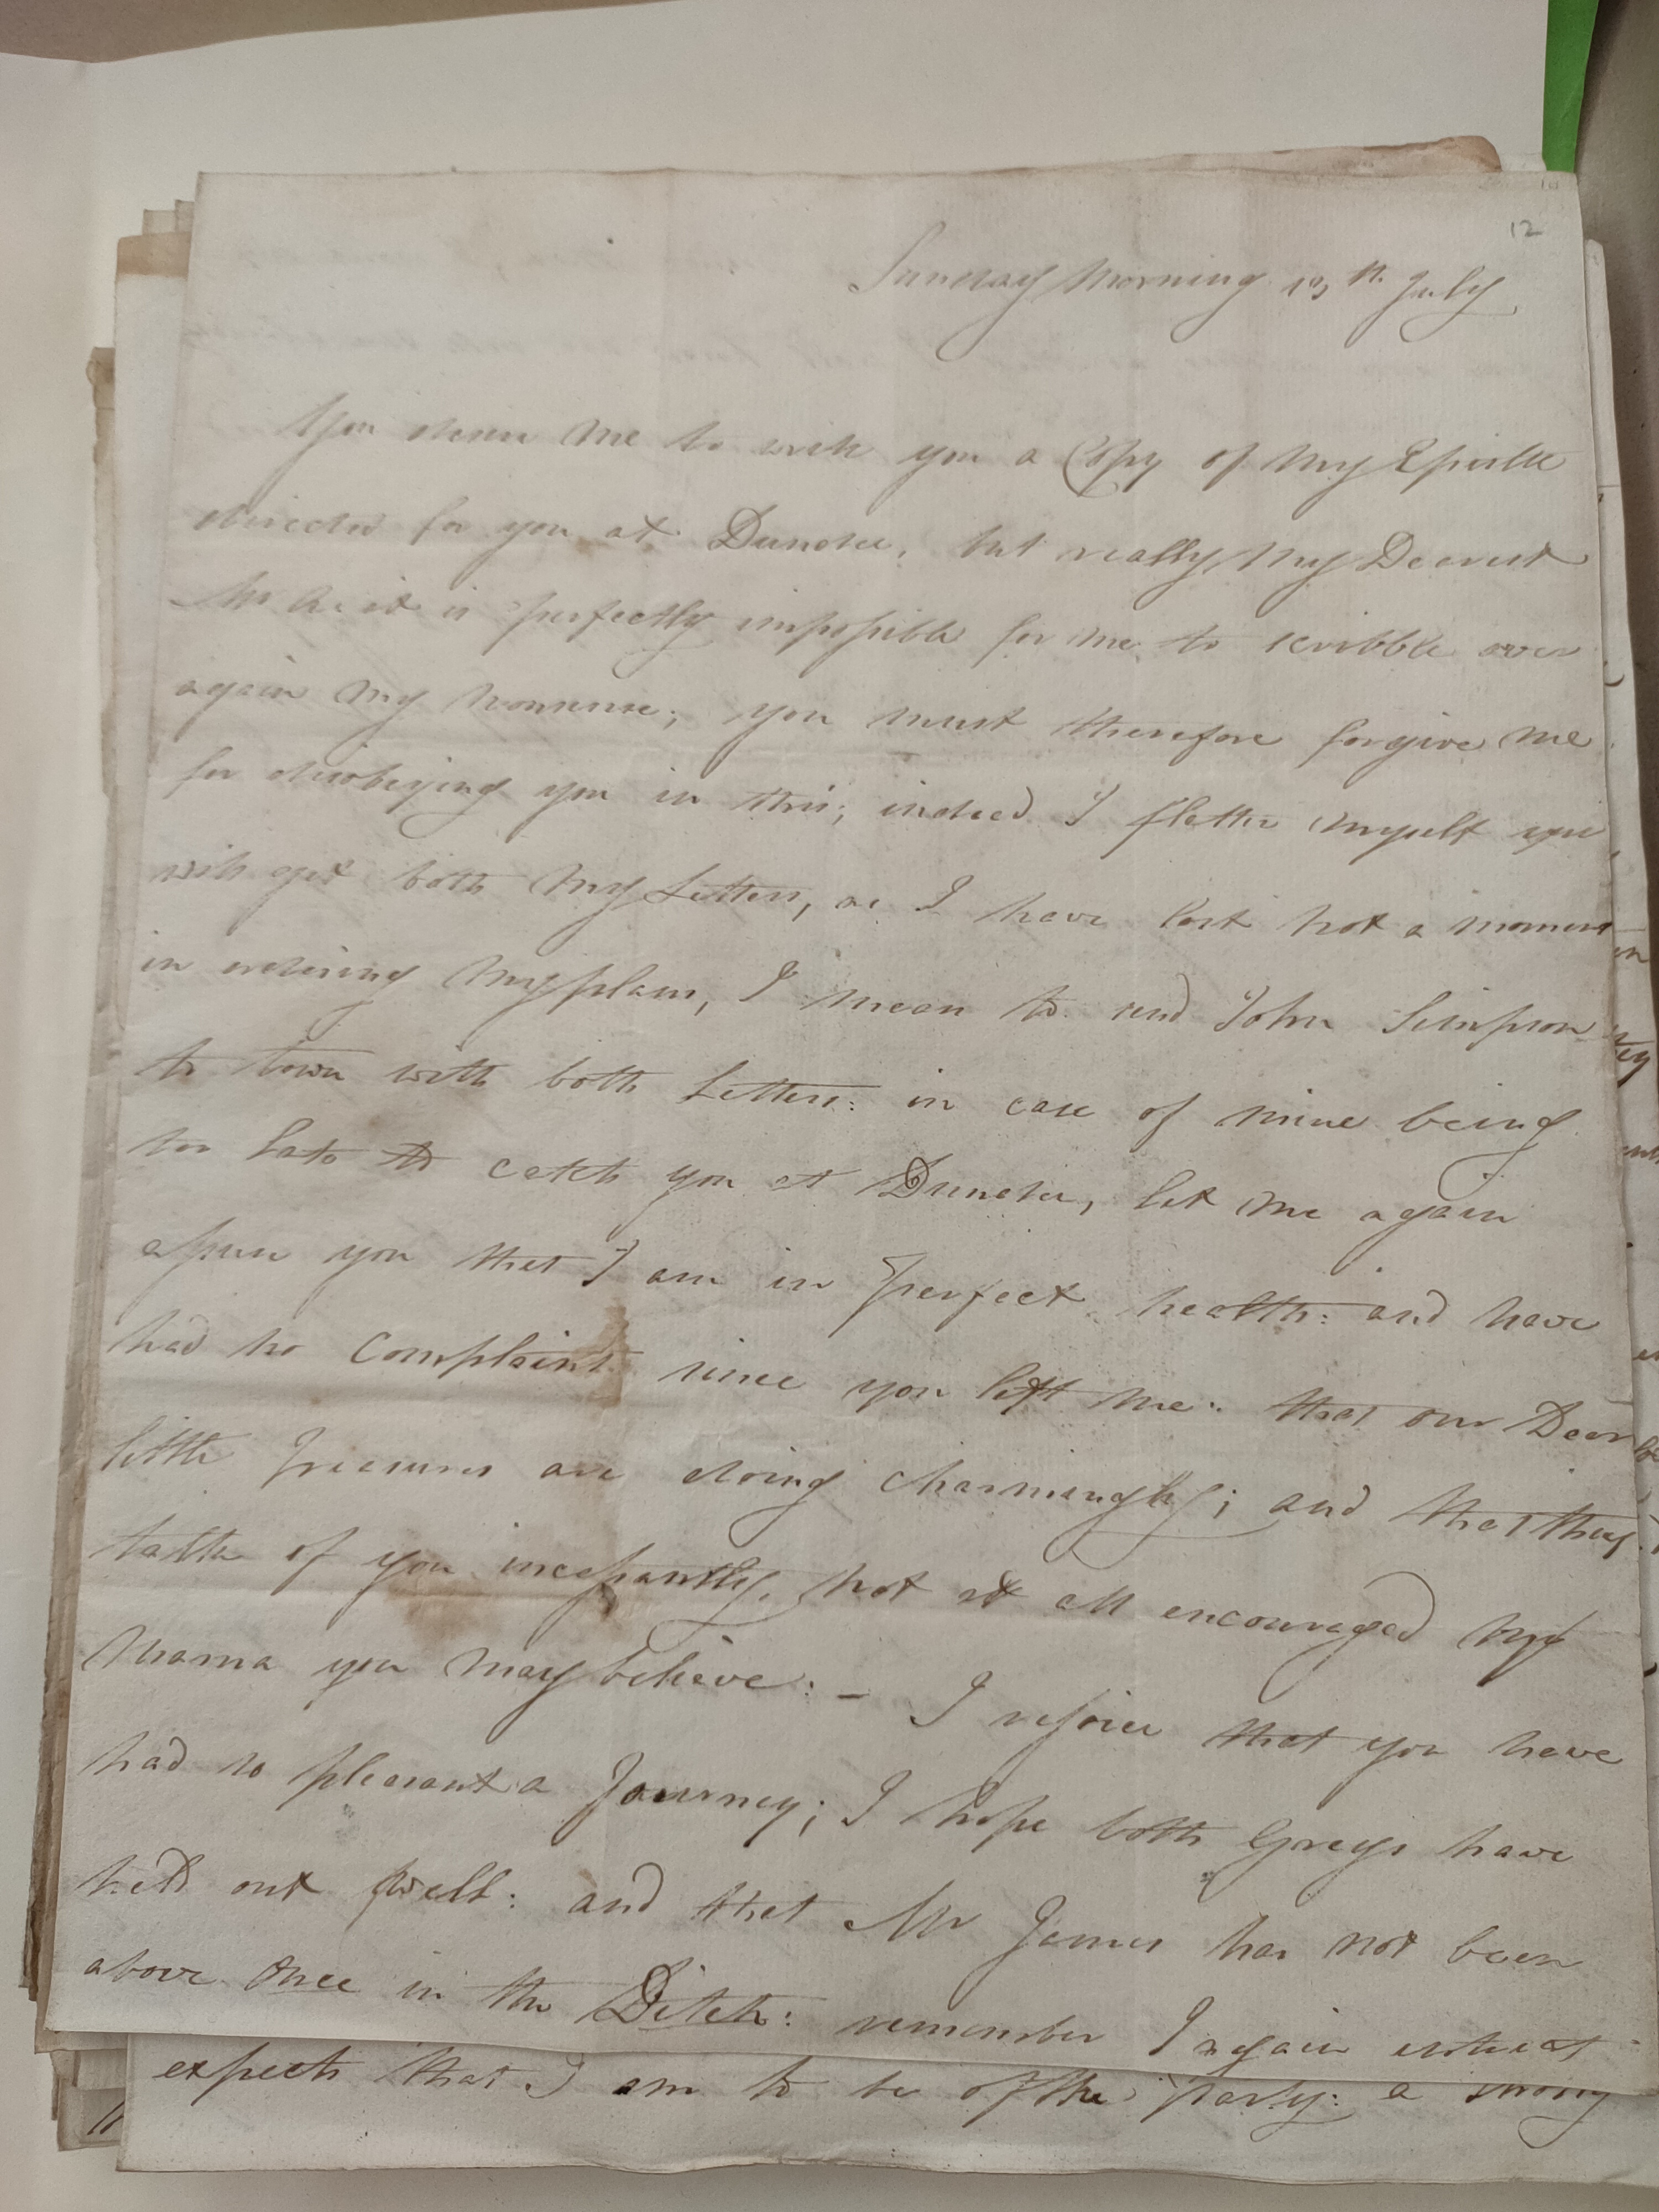 12
Sunday Morning 13th July
You desire me to write you a Copy of my Epistle
directed for you at Dundee, but really my Dearest
it is perfectly impossible for me to scribble over
again my nonsense; you must therefore forgive me
for disobeying you in this; indeed I flatter myself you
will get both my Letters, as I have lost not a moment
in my plans, I mean to send John Simpson
to town with both Letters: in case of mine being
too late to catch you at Dundee, let me again
assure you that I am in perfect health: and have
had no Complaint since you left me: that our Dear
little Treasures are doing charmingly; and that they
talk of you incessantly, not at all encouraged by
Mama you may believe: – I rejoice that you have
had so pleasant a Journey; I hope both Greys have
held out well: and that Mr James has not been
above Once in the Ditch: remember I again entreat
expects that I am to be of the party: a strong